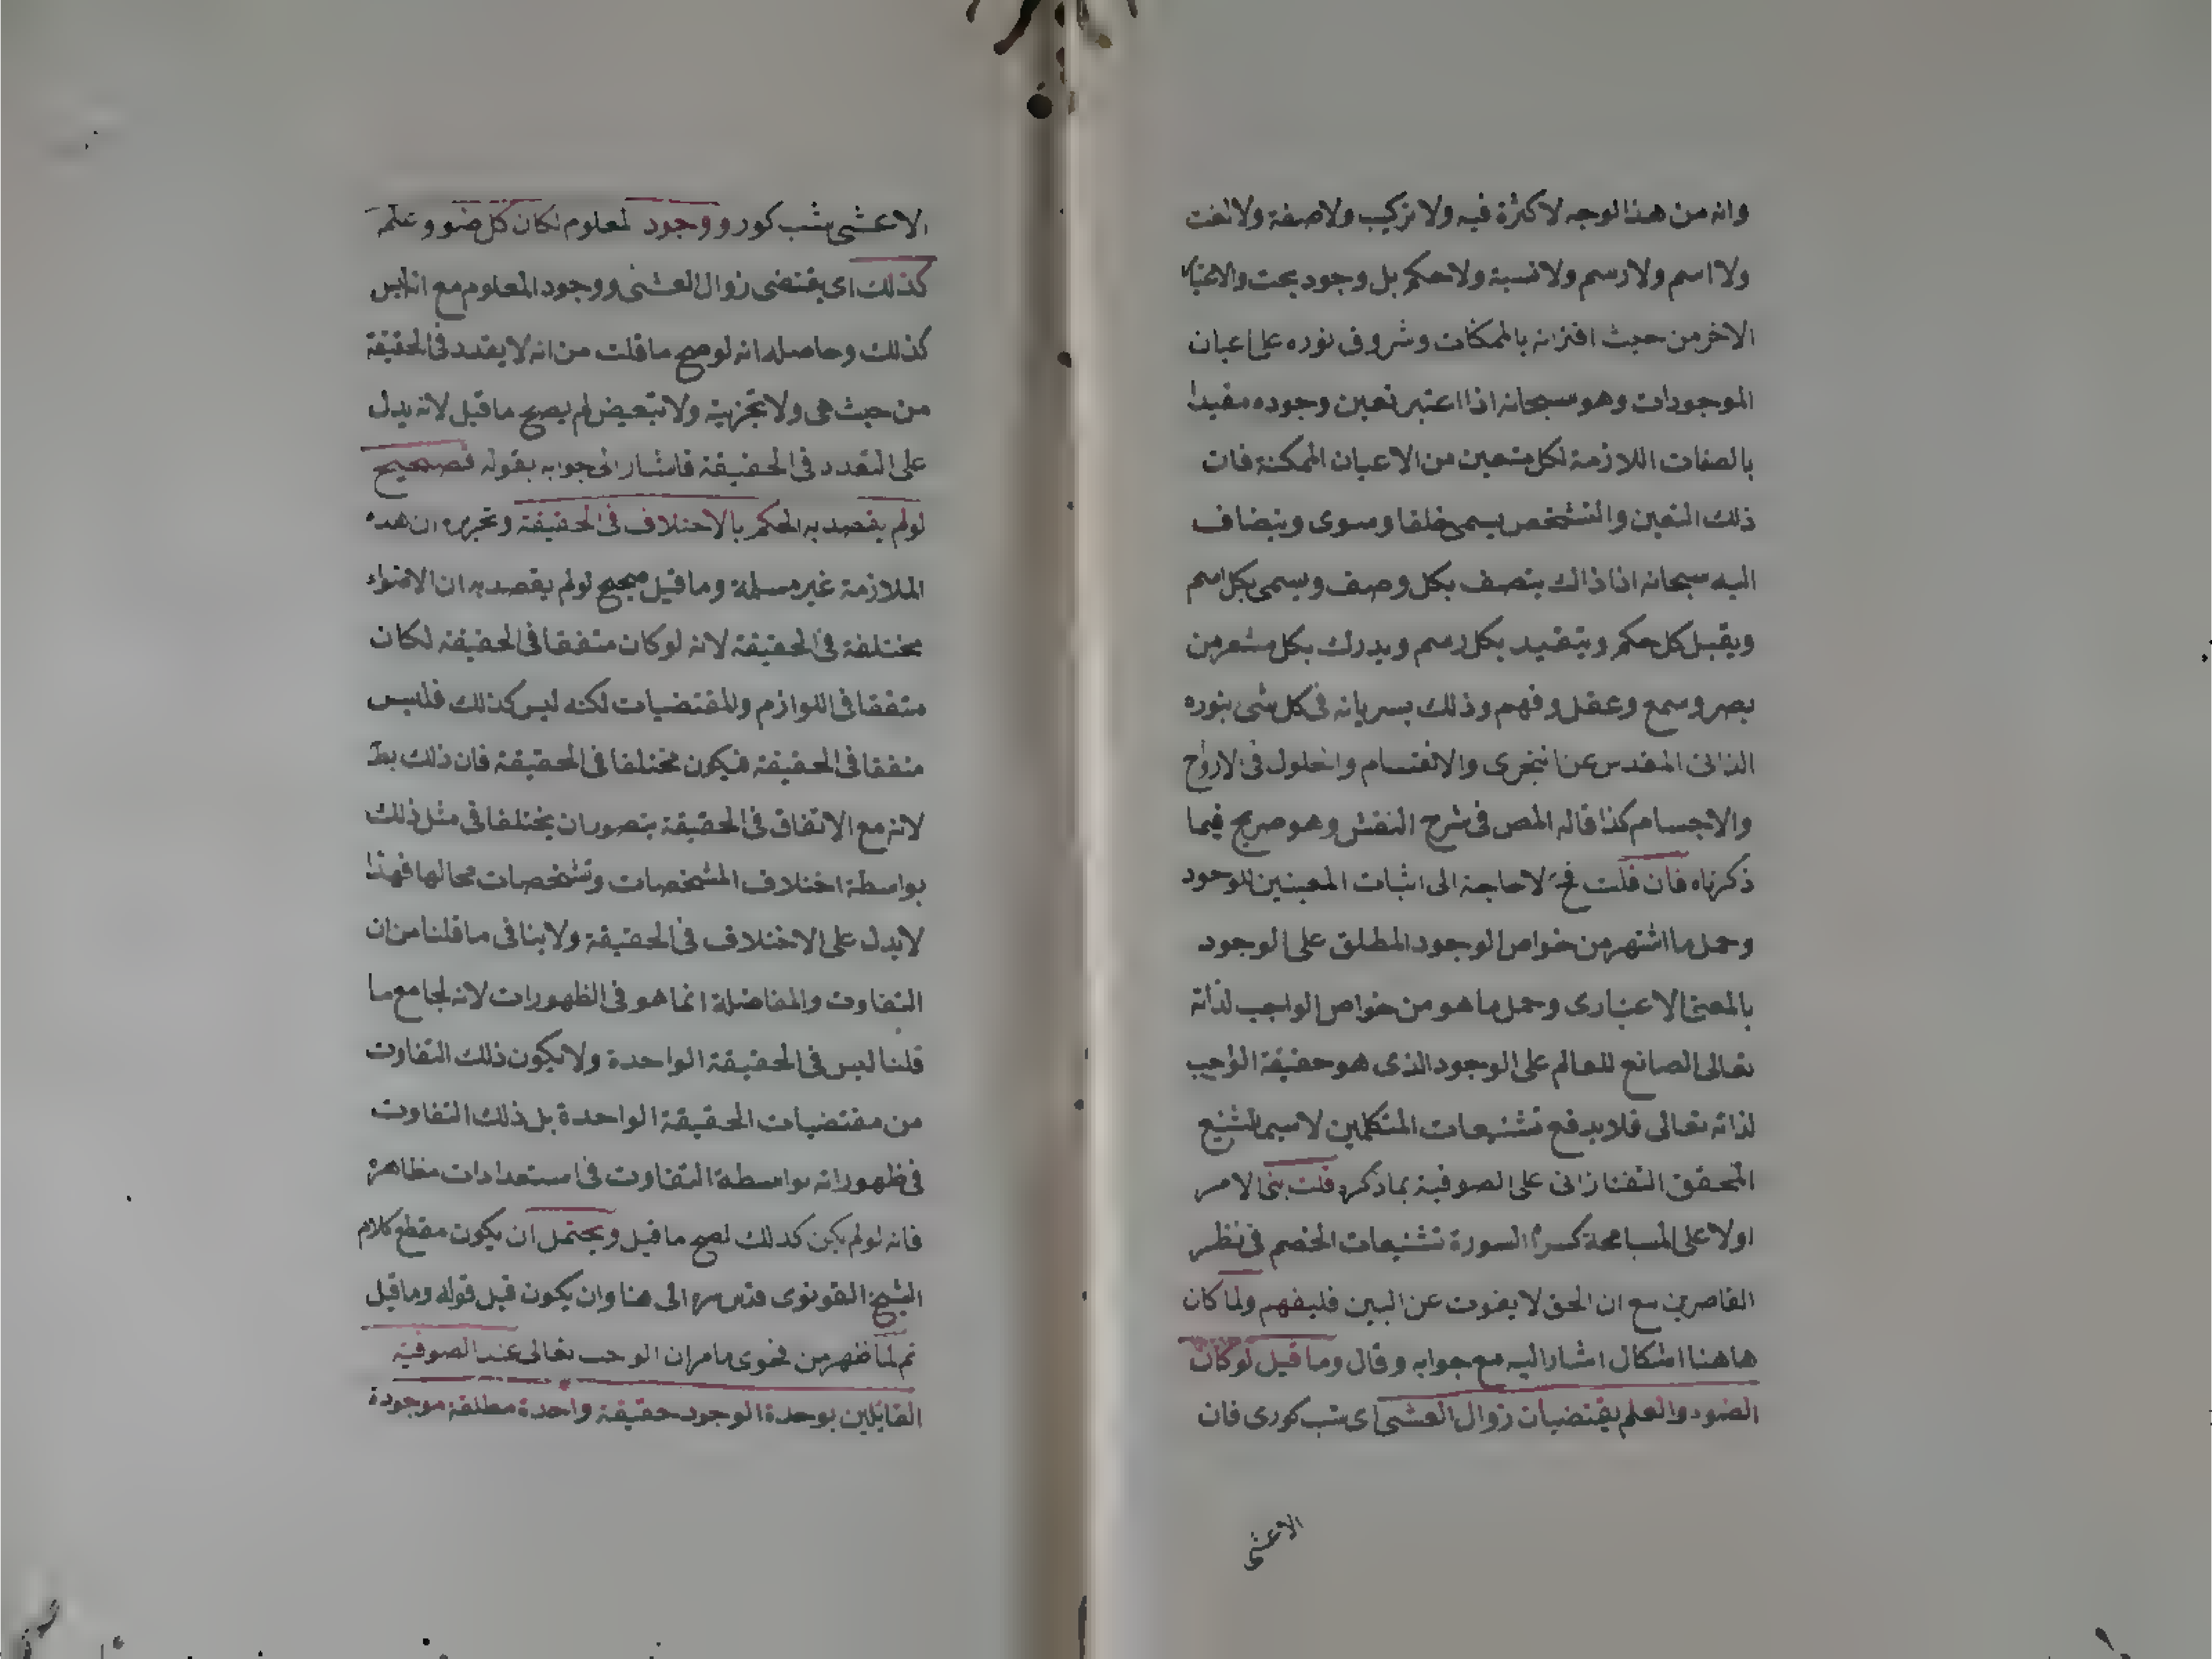 وانه من هذا الوجه لا كثرة فيه ولا تركيب ولا صفة ولا نعت
ولا اسم ولا رسم ولا نسبة ولا حكم بل وجود بحت والاعتبار
الاخر من حيث اقترانه بالممكنات وشروق نوره على اعيان
الموجودات وهو سبحانه اذا اعتبر تعين وجوده مقيدا
بالصفات اللازمة لكل متعين من الاعيان الممكنة فان
ذلك التعين والتشخص يسمى خلقا وسوى وينضاف
اليه سبحانه اذ ذاك يتصف بكل وصف ويسمى بكل اسم
ويقبل كل حكم ويتقيد بكل رسم ويدرك بكل مشعر من
بصر وسمع وعقل وفهم وذلك بسريانه فى كل شى بنوره
الذاتى المقدس عن التجزى والانقسام والحلول فى الارواح
والاجسام كذا قاله المص فى شرح النقش وهو صريح فيما
ذكرناه فان قلت فح لا حاجة الى اثبات المعنيين للوجود
وحمل ما اشتهر من خواص الوجود المطلق على الوجود
بالمعنى الاعتبارى وحمل ما هو من خواص الواجب لذاته
تعالى الصانع للعالم على الوجود الذى هو حقيقة الواجب
لذاته تعالى فلا يدفع تشنيعات المتكلمين لا سيما تشنيع
المحقق التفتازانى على الصوفية بما ذكر قلت بنى الامر
اولا على المسامحة كسرا لسورة تشنيعات الخصم فى نظر
القاصرين مع ان الحق لا يفوت عن البين فليفهم ولما كان
هاهنا اشكال اشار اليه مع جوابه وقال وما قيل لو كان
الضوء والعلم يقتضيان زوال العشى اى شب كورى فان
الاعشى
الاعشى شب كور ووجود المعلوم لكان كل ضوء وعلم
كذلك اى يقتضى زوال العشى ووجود المعلوم مع انه ليس
كذلك وحاصله انه لو صح ما قلت من انه لا تعدد فى الحقيقة
من حيث هى ولا تجزية ولا تبعيض لم يصح ما قيل لانه يدل
على التعدد فى الحقيقة فاشار الى جوابه بقوله فصحيح
لو لم يقصد به الحكم بالاختلاف فى الحقيقة وتحريره ان هذه
الملازمة غير مسلمة وما قيل صحيح لو لم يقصد به ان الاضواء
مختلفة فى الحقيقة لانه لو كان متفقا فى الحقيقة لكان
متفقا فى اللوازم والمقتضيات لكنه ليس كذلك فليس
متفقا فى الحقيقة فيكون مختلفا فى الحقيقة فان ذلك بط
لانه مع الاتفاق فى الحقيقة يتصور ان يختلفا فى مثل ذلك
بواسطة اختلاف المشخصات وتشخصات محالها فهذا
لا يدل على الاختلاف فى الحقيقة ولا ينافى ما قلنا من ان
التفاوت والمفاضلة انما هو فى الظهورات لانه لجامع ما
قلنا ليس فى الحقيقة الواحدة ولا يكون ذلك التفاوت
من مقتضيات الحقيقة الواحدة بل ذلك التفاوت
فى ظهوراته بواسطة التفاوت فى استعدادات مظاهره
فانه لو لم يكن كذلك لصح ما قيل ويحتمل ان يكون مقطع كلام
الشيخ القونوى قدس سره الى هنا وان يكون قبل قوله وما قيل
ثم لما ظهر من فحوى ما مر ان الوجب تعالى عند الصوفية
القايلين بوحدة الوجود حقيقة واحدة مطلقة موجودة